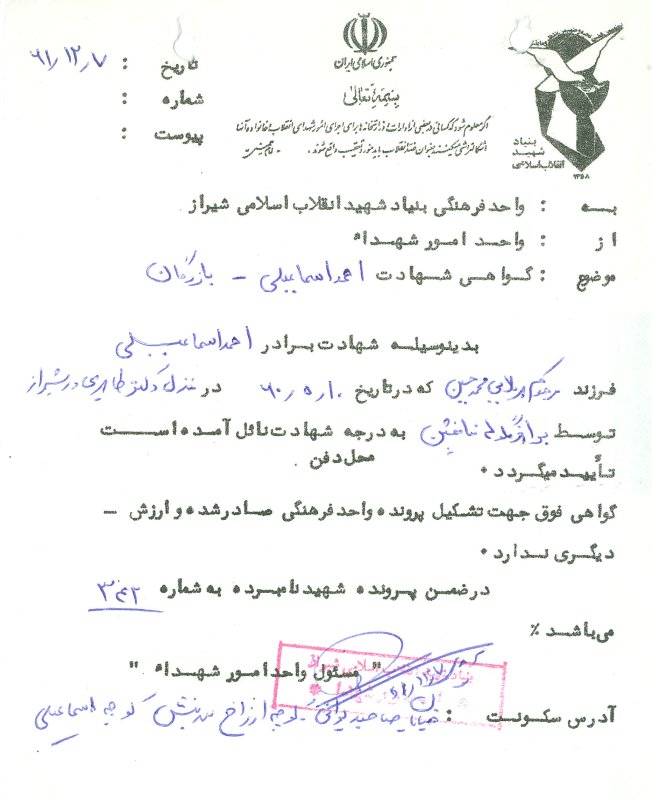 جمهوری اسلامی ایران
بسمه تعالی
اگر معلوم شود که کسانی در بعضی از ادارات و وزارتخانه‌ها برای اجرای امور شهدای انقلاب و خانواده آنها
اشکالتراشی میکنند بعنوان ضد انقلاب باید مورد تعقیب واقع شوند. - امام خمینی
بنیاد
شهید
انقلاب اسلامی
۱۳۵۸
تاریخ : ۶۱/۱۲/۷
شماره :
پیوست :
به : واحد فرهنگی بنیاد شهید انقلاب اسلامی شیراز
از : واحد امور شهداء
موضوع : گواهی شهادت احمد اسماعیلی - بازرگان
بدینوسیله شهادت برادر احمد اسماعیلی
فرزند مرحوم محمدحسین که در تاریخ ۶۰/۵/۱۰ در منزل دکتر طاهری در شیراز
توسط منافقین به درجه شهادت نائل آمده است
محل دفن
تأیید میگردد .
گواهی فوق جهت تشکیل پرونده واحد فرهنگی صادر شده و ارزش -
دیگری ندارد .
در ضمن پرونده شهید نامبرده به شماره ۳۴۲
می‌باشد ٪
" مسئول واحد امور شهداء "
۶۱/۱۲/۷
آدرس سکونت : خیابان کوچه کوچه اسماعیلی